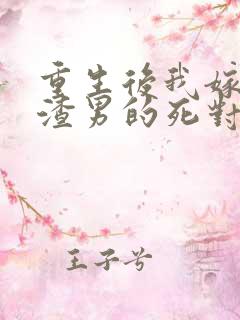 重生後我嫁
渣男的死對
王子兮